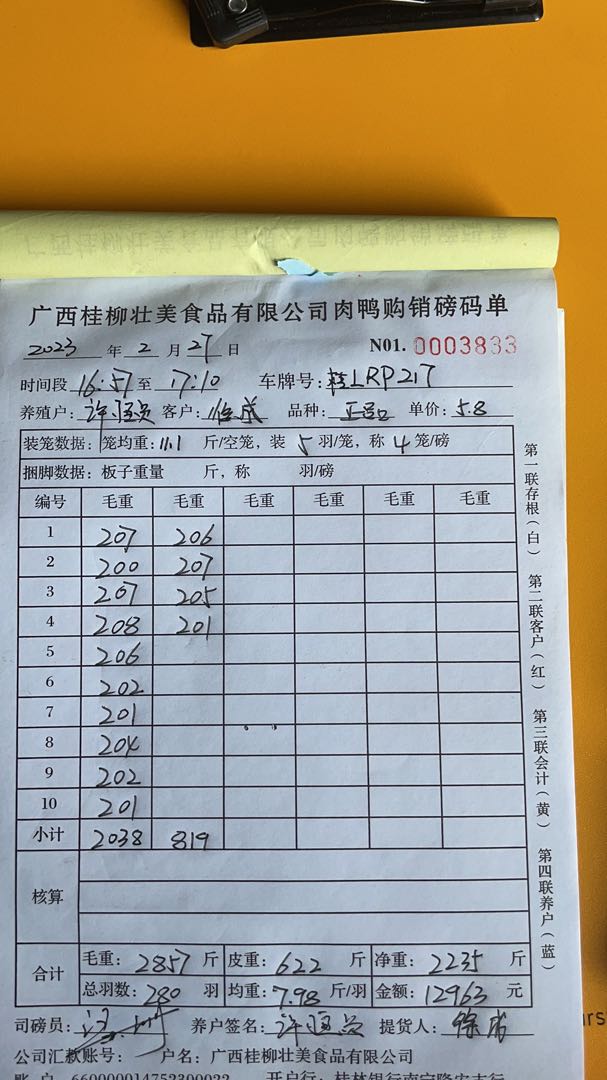 广西桂柳壮美食品有限公司肉鸭购销磅码单
2023年2月27日 N01. 0003833
时间段 16:57至17:10 车牌号:桂LRP217
养殖户: 客户: 品种: 单价:5.8
装笼数据: 笼均重:11.1斤/空笼, 装5羽/笼, 称4笼/磅
捆脚数据: 板子重量 斤, 称 羽/磅
编号 毛重 毛重 毛重 毛重 毛重 毛重
1 207 206
2 200 207
3 207 205
4 208 201
5 206
6 202
7 201
8 204
9 202
10 201
小计 2038 819
核算
合计 毛重: 2857斤 皮重: 622斤 净重: 2235斤
总羽数: 280羽 均重: 7.98斤/羽 金额: 12963元
司磅员: 养户签名: 提货人:
公司汇款账号: 户名: 广西桂柳壮美食品有限公司
第一联存根(白) 第二联客户(红) 第三联会计(黄) 第四联养户(蓝)